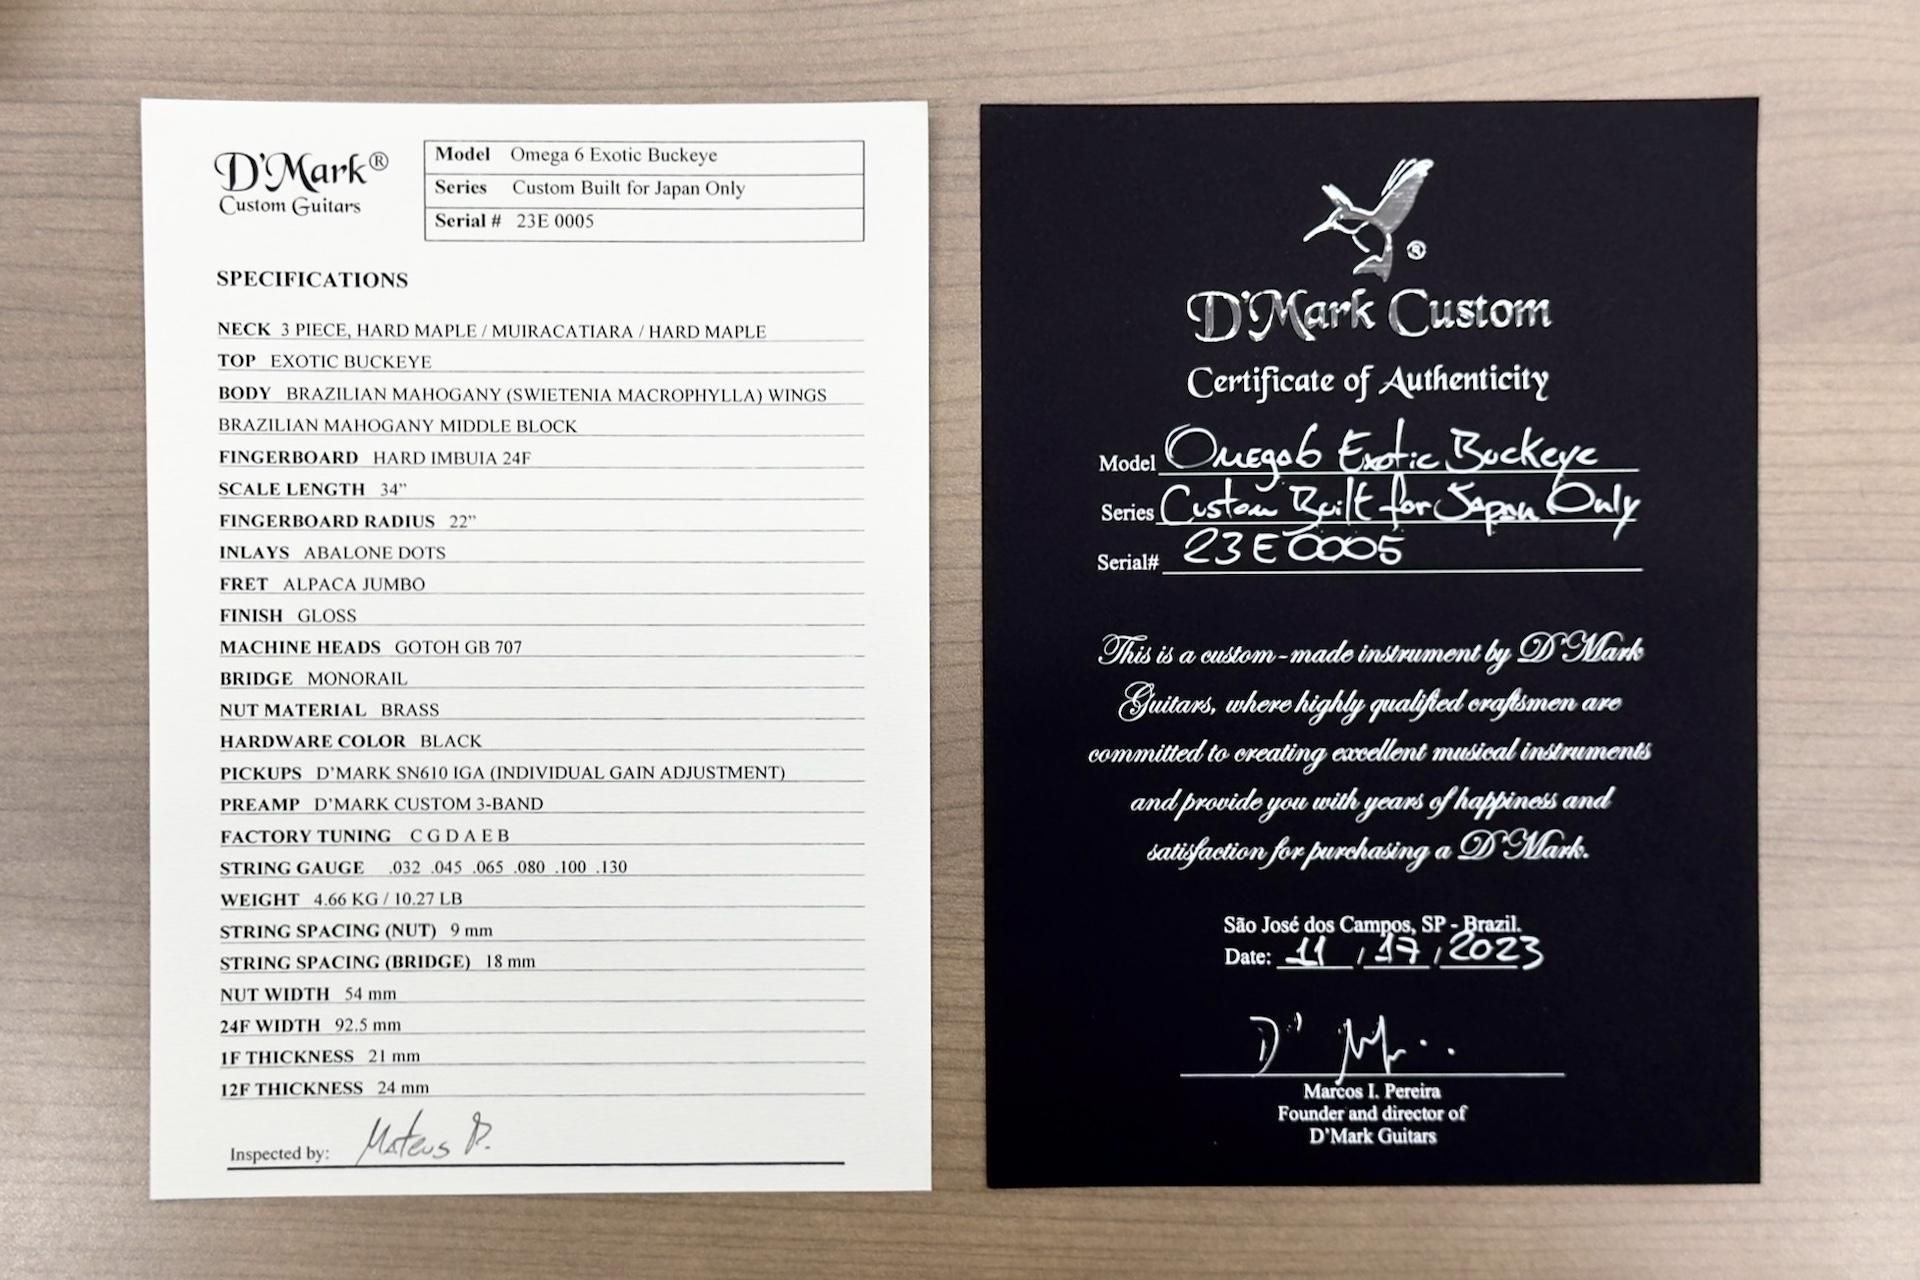 D'Mark®
Custom Guitars
Model Omega 6 Exotic Buckeye
Series Custom Built for Japan Only
Serial # 23E 0005
SPECIFICATIONS
NECK 3 PIECE, HARD MAPLE / MUIRACATIARA / HARD MAPLE
TOP EXOTIC BUCKEYE
BODY BRAZILIAN MAHOGANY (SWIETENIA MACROPHYLLA) WINGS
BRAZILIAN MAHOGANY MIDDLE BLOCK
FINGERBOARD HARD IMBUIA 24F
SCALE LENGTH 34”
FINGERBOARD RADIUS 22”
INLAYS ABALONE DOTS
FRET ALPACA JUMBO
FINISH GLOSS
MACHINE HEADS GOTOH GB 707
BRIDGE MONORAIL
NUT MATERIAL BRASS
HARDWARE COLOR BLACK
PICKUPS D’MARK SN610 IGA (INDIVIDUAL GAIN ADJUSTMENT)
PREAMP D’MARK CUSTOM 3-BAND
FACTORY TUNING C G D A E B
STRING GAUGE .032 .045 .065 .080 .100 .130
WEIGHT 4.66 KG / 10.27 LB
STRING SPACING (NUT) 9 mm
STRING SPACING (BRIDGE) 18 mm
NUT WIDTH 54 mm
24F WIDTH 92.5 mm
1F THICKNESS 21 mm
12F THICKNESS 24 mm
Inspected by: Mateus P.
®
D'Mark Custom
Certificate of Authenticity
Model Omega 6 Exotic Buckeye
Series Custom Built for Japan Only
Serial# 23E0005
This is a custom-made instrument by D'Mark
Guitars, where highly qualified craftsmen are
committed to creating excellent musical instruments
and provide you with years of happiness and
satisfaction for purchasing a D'Mark.
São José dos Campos, SP - Brazil.
Date: 11 / 17 / 2023
Marcos I. Pereira
Founder and director of
D’Mark Guitars